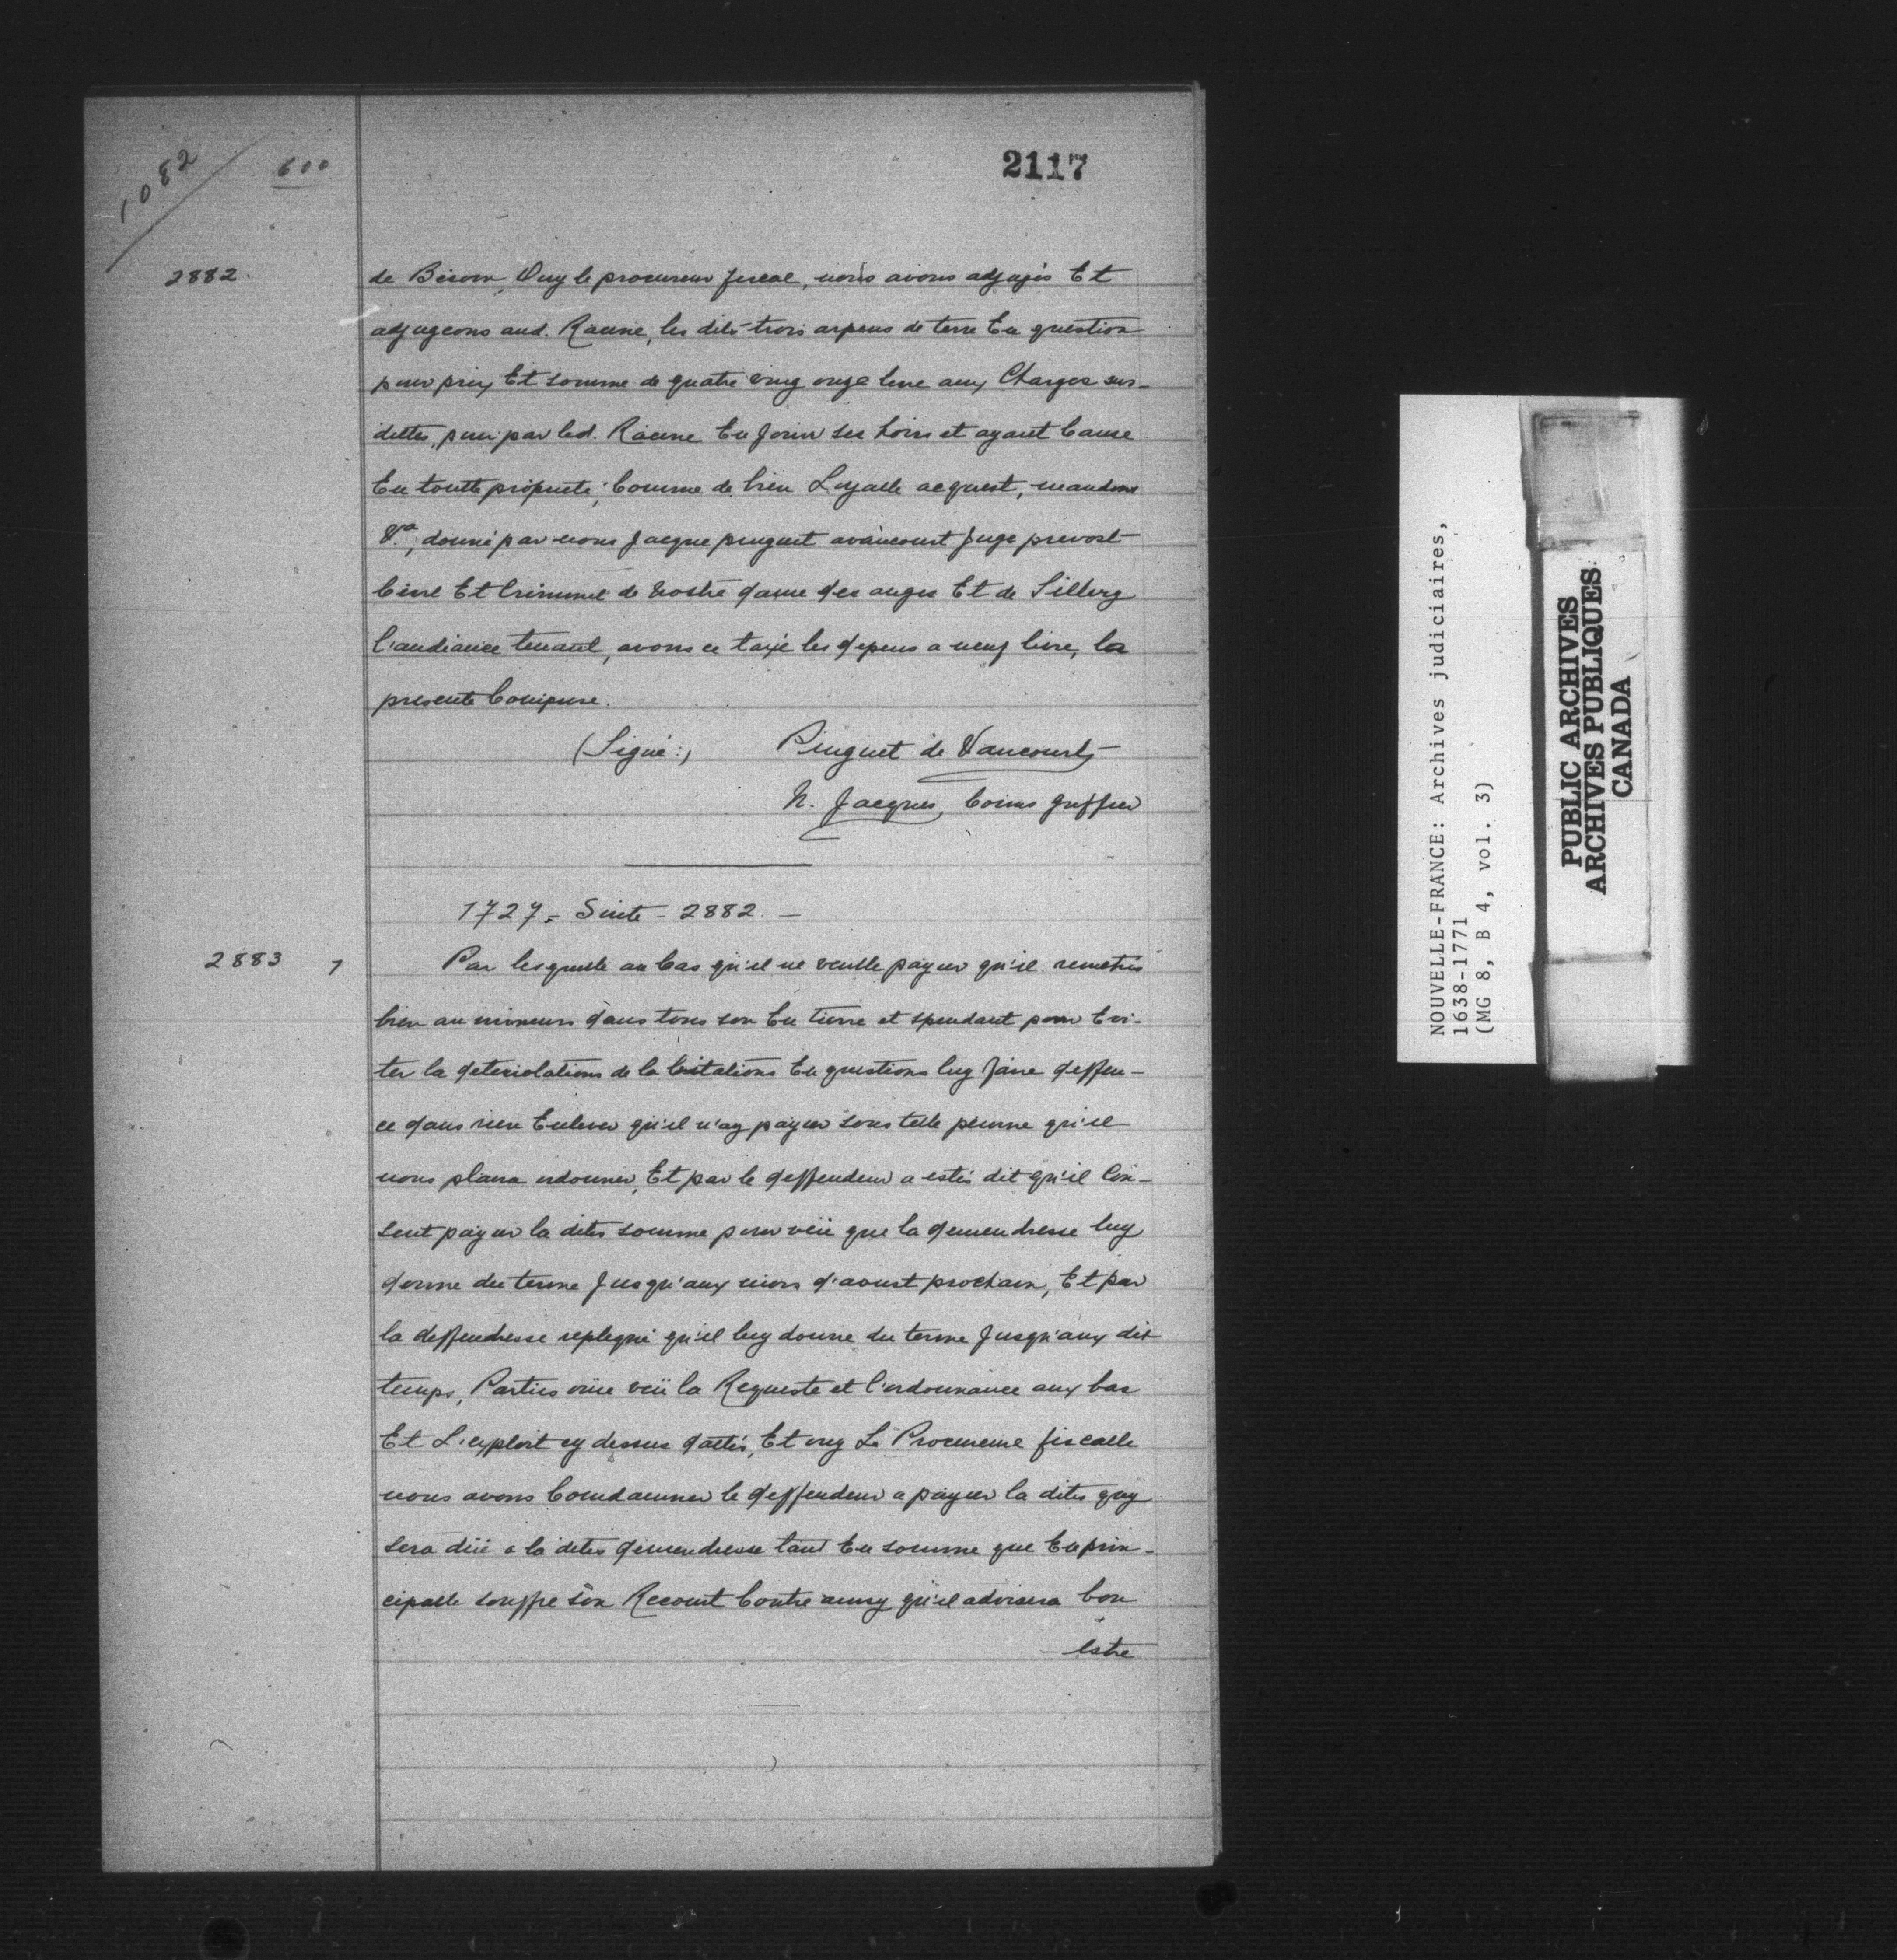 1082
600
2117
2882
de Besoin, Ouy le procureur fiscal, nous avons adjugés Et
adjugeons aud. Racine, les dits trois arpens de terre En question
pour prix Et somme de quatre ving onze livre aux Charges sus-
dittes, pour par led. Racine En jouir ses hoirs et ayant Cause
En toutte propriété; Comme de bien Loyalle acquest, mandons
&a, donné par nous Jacque pinguet avaucourt Juge prevost
Civil Et Criminel de Nostre dame des anges Et de Sillery
l'audiance tenant, avons ce taxé les depens a neuf livre, la
presente Comprise.
(Signé:) Pinguet de Vaucourt
N. Jacques, Comis greffier
1727 - Suite - 2882 -
2883 7
Par lesquelle au Cas qu'il ne veulle payer qu'il remetres
bien au mineurs dans tous son En tierre et spendant pour Evi-
ter la deteriolations de la bitations En questions luy faire deffen-
ce dans rien Enlever qu'il n'ay payer sous telle peinne qu'il
nous plaira ordonner, Et par le deffendeur a estés dit qu'il Con-
sent payer la dites somme pour veü que la demendresse luy
donne du terme Jusqu'aux mois d'aoust prochain, Et par
la deffendresse repliqué qu'il luy donne du terme Jusqu'aux dit
temps, Parties ouïe veü la Requeste et l'ordonnance aux bas
Et L'exploit cy dessus dattés, Et ouy Le Procureure fiscalle
nous avons Comdamner le deffendeur a payer la dites quy
sera düe a la dites demendresse tant En somme que En prin-
cipalle souffre son Recourt Contre aussy qu'il advisera bon
Estre
NOUVELLE-FRANCE: Archives judiciaires,
1638-1771
(MG 8, B 4, vol. 3)
PUBLIC ARCHIVES
ARCHIVES PUBLIQUES
CANADA